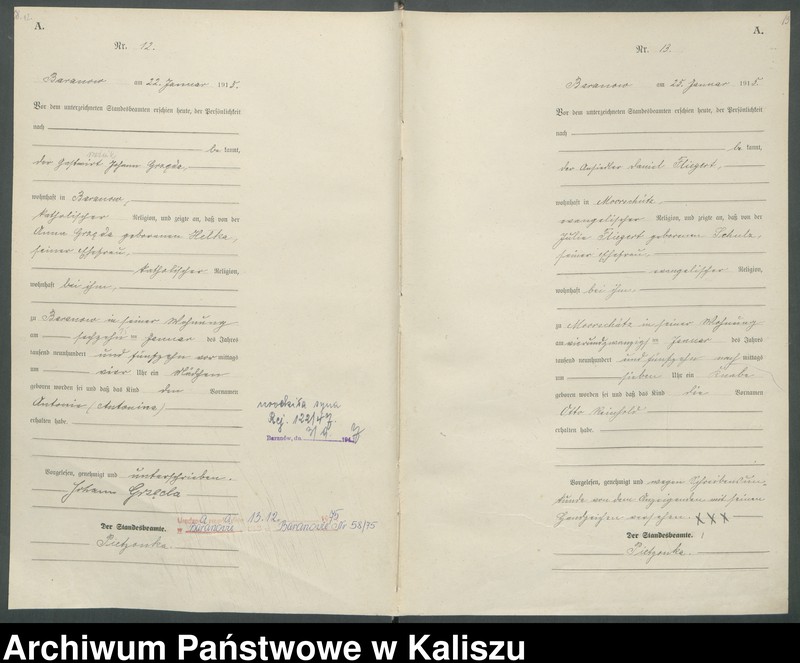 A.
Nr. 12.
Baranow am 22. Januar 1915.
Vor dem unterzeichneten Standesbeamten erschien heute, der Persönlichkeit
nach
be kannt,
der Gastwirt Johann Grzęda,
wohnhaft in Baranow,
katholischer Religion, und zeigte an, daß von der
Anna Grzęda geborenen Hełka,
seiner Ehefrau,
katholischer Religion,
wohnhaft bei ihm,
zu Baranow in seiner Wohnung
am sechzehnten Januar des Jahres
tausend neunhundert und fünfzehn vor mittags
um vier Uhr ein Mädchen
geboren worden sei und daß das Kind den Vornamen
Antonie (Antonina)
erhalten habe.
Vorgelesen, genehmigt und unterschrieben.
Johann Grzęda
Der Standesbeamte.
Pietzonka.
Rej. 122/47.
Baranów, du
13.12. 75
Baranów Nr 58/75
A.
Nr. 13.
Baranow am 25. Januar 1915.
Vor dem unterzeichneten Standesbeamten erschien heute, der Persönlichkeit
nach
be kannt,
der Ansiedler Daniel Fliegert,
wohnhaft in Moorschütz,
evangelischer Religion, und zeigte an, daß von der
Julie Fliegert geborenen Schulz,
seiner Ehefrau,
evangelischer Religion,
wohnhaft bei ihm,
zu Moorschütz in seiner Wohnung
am vierundzwanzigsten Januar des Jahres
tausend neunhundert und fünfzehn nach mittags
um sieben Uhr ein Knabe
geboren worden sei und daß das Kind die Vornamen
Otto Reinhold
erhalten habe.
Vorgelesen, genehmigt und wegen Schreibensun-
kunde von dem Anzeigenden mit seinen
Handzeichen versehen. XXX
Der Standesbeamte.
Pietzonka.
Archiwum Państwowe w Kaliszu